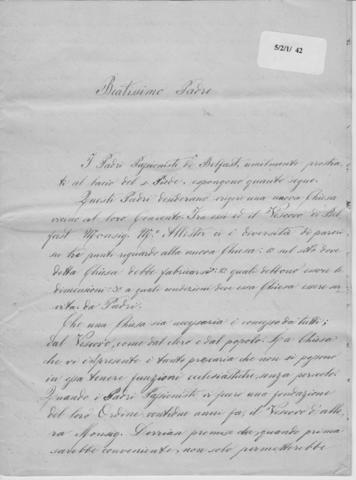 S/2/1/ 42
Beatissimo Padre
I Padri Passionisti di Belfast, umilmente prostra-
ti al bacio del s. Piede, espongono quanto segue.
Questi Padri desiderano erigere una nuova Chiesa
vicino al loro Convento. Tra essi ed il Vescovo di Bel-
fast Monsig. Mc. Allister vi è diversità di parere
su tre punti riguardo alla nuova Chiesa: 1o sul sito dove
detta Chiesa debba fabbricarsi: 2o quali debbono essere le
dimensioni: 3o a quali condizioni deve essa Chiesa essere ser-
vita da Padri.
Che una Chiesa sia necessaria è conceduto da tutti;
dal Vescovo, come dal clero e dal popolo. La Chiesa
che vi è al presente è tanto precaria che non si possono
in essa tenere funzioni ecclesiastiche, senza pericolo.
Quando i Padri Passionisti vi fecero una fondazione
del loro Ordine, ventidue anni fa, il Vescovo di allo-
ra Monsig. Dorrian promise che, quando prima
sarebbe conveniente, non solo permetterebbe